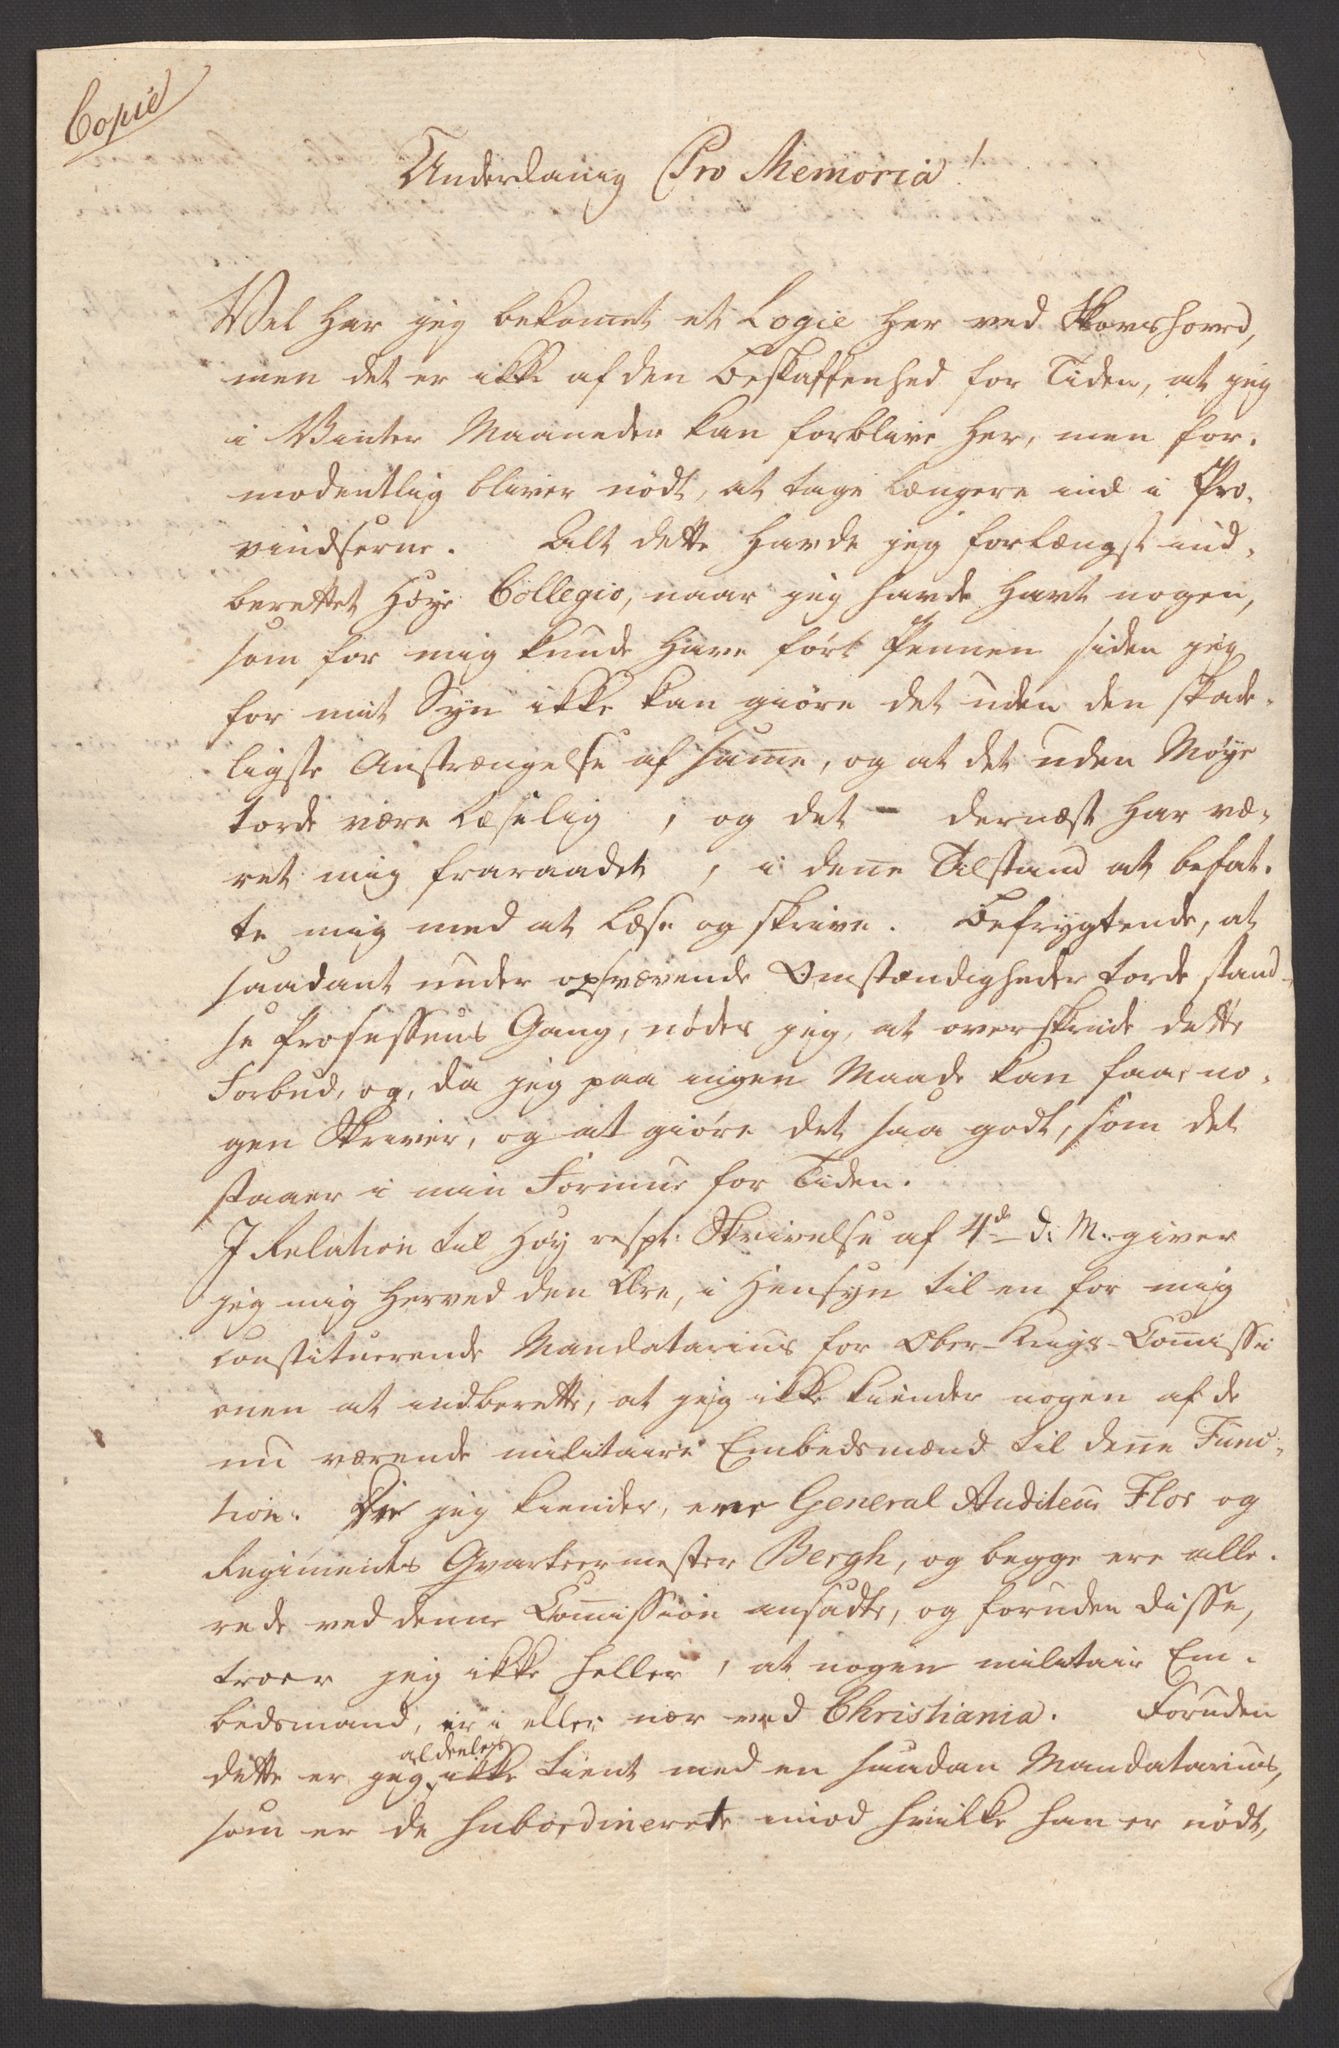 Copie
Underdanig Pro Memoria!
Vel har jeg bekomet et Logie her ved Skovshoved,
men det er ikke af den Beskaffenhed for Tiden, at jeg
i Vinter Maaneder kan forblive her, men for-
modentlig bliver nödt, at tage længere ind i Pro-
vindserne. Alt dette havde jeg forlængst ind-
berettet Høye Collegio, naar jeg havde havt nogen,
som for mig kunde have fört Pennen siden jeg
for mit Syn ikke kan giöre det uden den skade-
ligste Anstrængelse af same, og at det uden Møye
torde være læselig, og det - dernæst har væ-
ret mig fraraadet, i dene Tilstand at befat-
te mig med at læse og skrive. Befrygtende, at
saadant under opsvævende Omstændigheder torde stand-
se Processens Gang, nödes jeg, at overskride dette
Forbud, og, da jeg paa ingen Maade kan faae no-
gen Skriver, og at giöre det saa godt, som det
staaer i min Formue for Tiden.
I Relation til Høy respt: Skrivelse af 4de d: M. giver
jeg mig herved den Ære, i Hensyn til en for mig
constituerende Mandatarius for Ober-Krigs-Comissi
onen at indberette, at jeg ikke kiender nogen af de
nu værende militaire Embedsmænd til dene Func-
tion. De jeg kiender, ere General Auditeur Flor og
Regiments Qvarteermester Bergh, og begge ere alle-
rede ved denne Comission ansadte, og foruden disse,
troer jeg ikke heller, at nogen militair Em-
bedsmand, er i eller nær ved Christiania. Foruden
aldeeles
dette er jeg ikke tient med en saadan Mandatarius,
som er de subordinerete imod hvilke han er nödt,